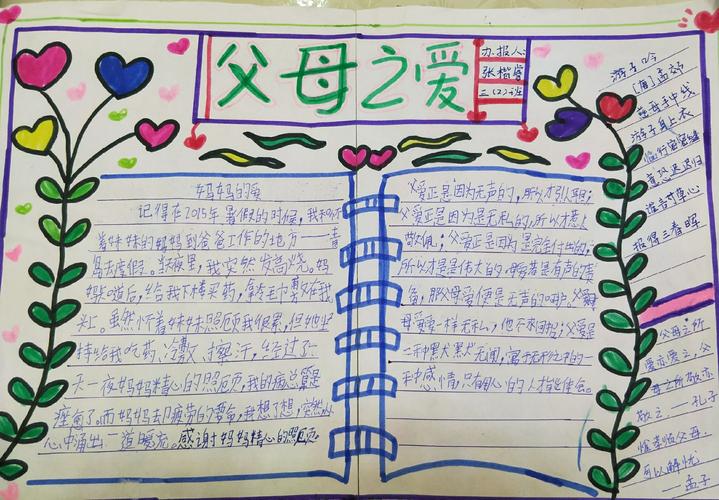 父母之爱
办报人:
张楷睿
三(2)班
妈妈的爱
记得在2015年暑假的时候,我和怀
着妹妹的妈妈到爸爸工作的地方——青
岛去度假。一天夜里,我突然发高烧。妈
妈知道后,给我下楼买药,拿冷毛巾敷在我
头上。虽然怀着妹妹照顾我很累,但她坚
持给我吃药、冷敷、擦汗,经过了一
天一夜妈妈精心的照顾,我的病总算是
痊愈了。而妈妈却疲劳的要命,我想了想,突然从
心中涌出一道暖流。感谢妈妈精心的照顾。
父爱正是因为无声的,所以才引人
父爱正是因为是无私的,所以才惹人
敬佩;父爱正是因为是完全付出的,
所以才是是伟大的。
备,那父母爱便是无声的
母爱一样无私,他不求回报;父爱是
一种默默无闻,寓于无形之中的一
种感情,只有用心的人才能体会。
游子吟
[唐]孟郊
慈母手中线
游子身上衣
临行密密缝
意恐迟迟归
谁言寸草心
报得三春晖
父母之所
爱亦爱之,父
母之所敬亦
敬之——孔子
惟孝顺父母,
可以解忧
——孟子